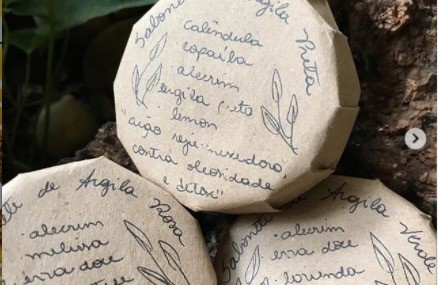 Sabonete de Argila Preta
calêndula
copaíba
alecrim
argila preta
limon
"ação rejuvenescedora,
contra oleosidade
e détox"
de Argila Rosa
alecrim
melissa
erva doce
Sabonete de Argila Verde
alecrim
erva doce
lavanda